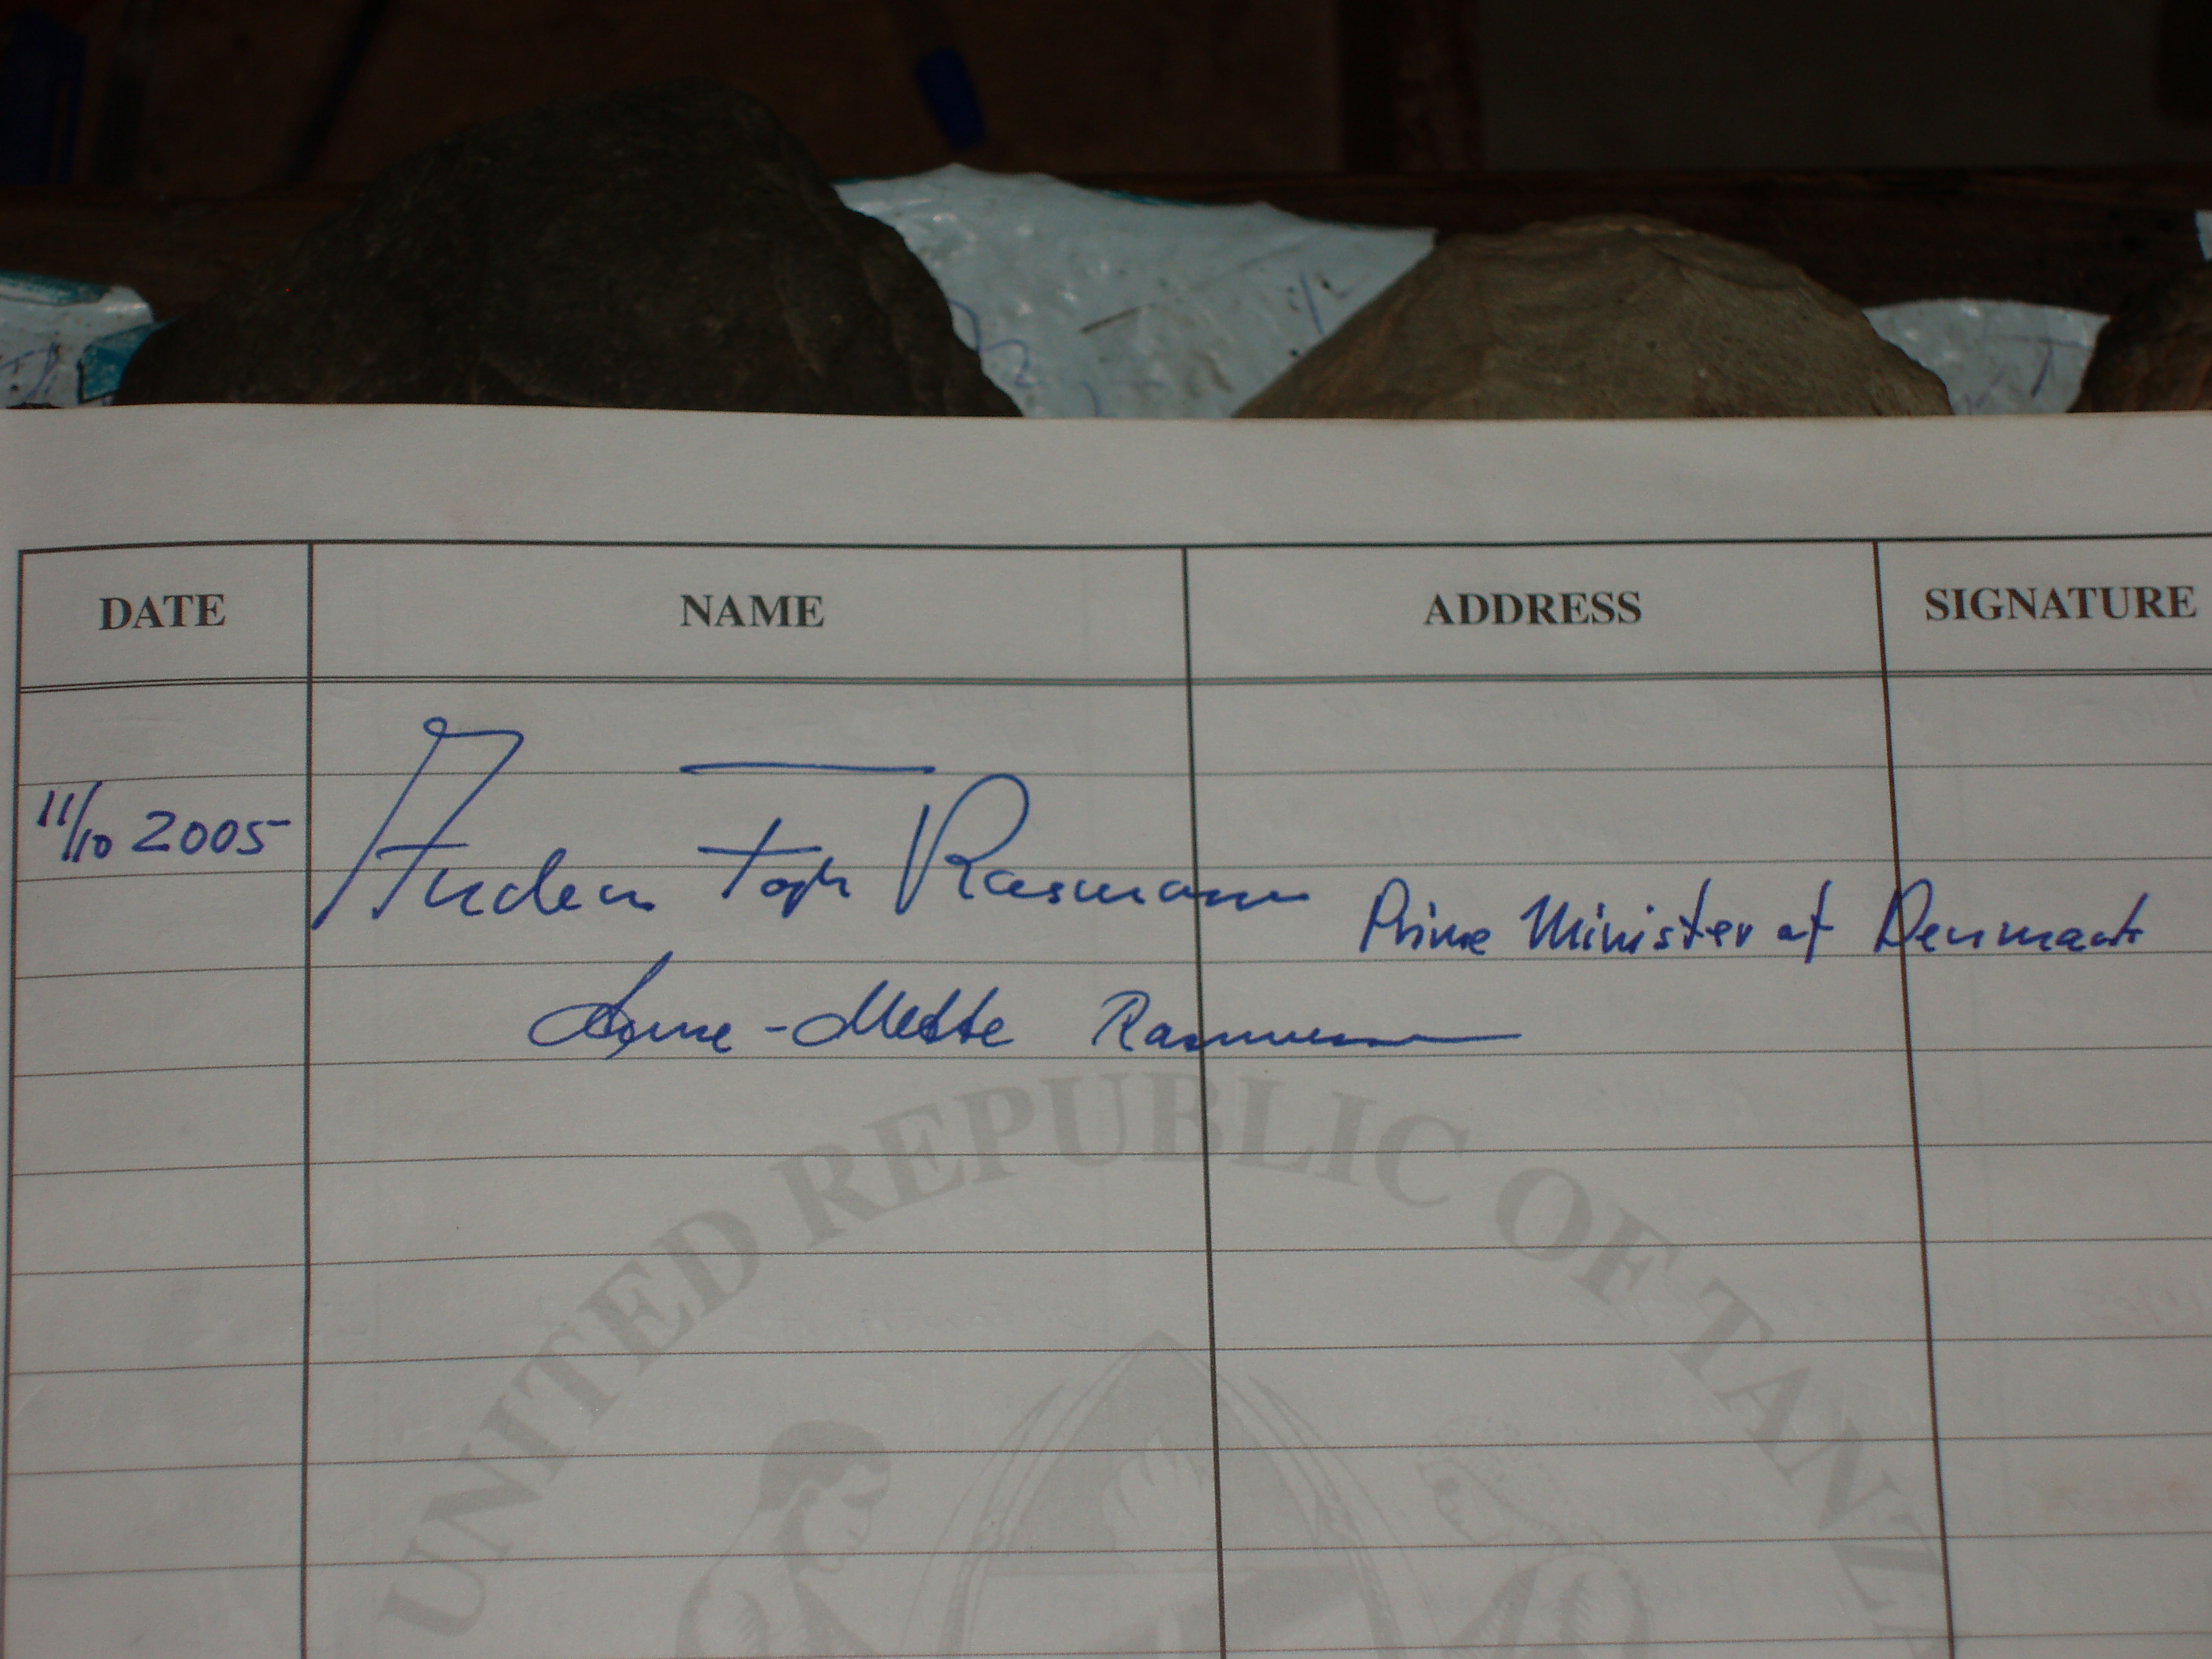 DATE NAME ADDRESS SIGNATURE
11/10 2005 Anders Fogh Rasmussen Prime Minister of Denmark
Anne-Mette Rasmussen
UNITED REPUBLIC OF TANZA